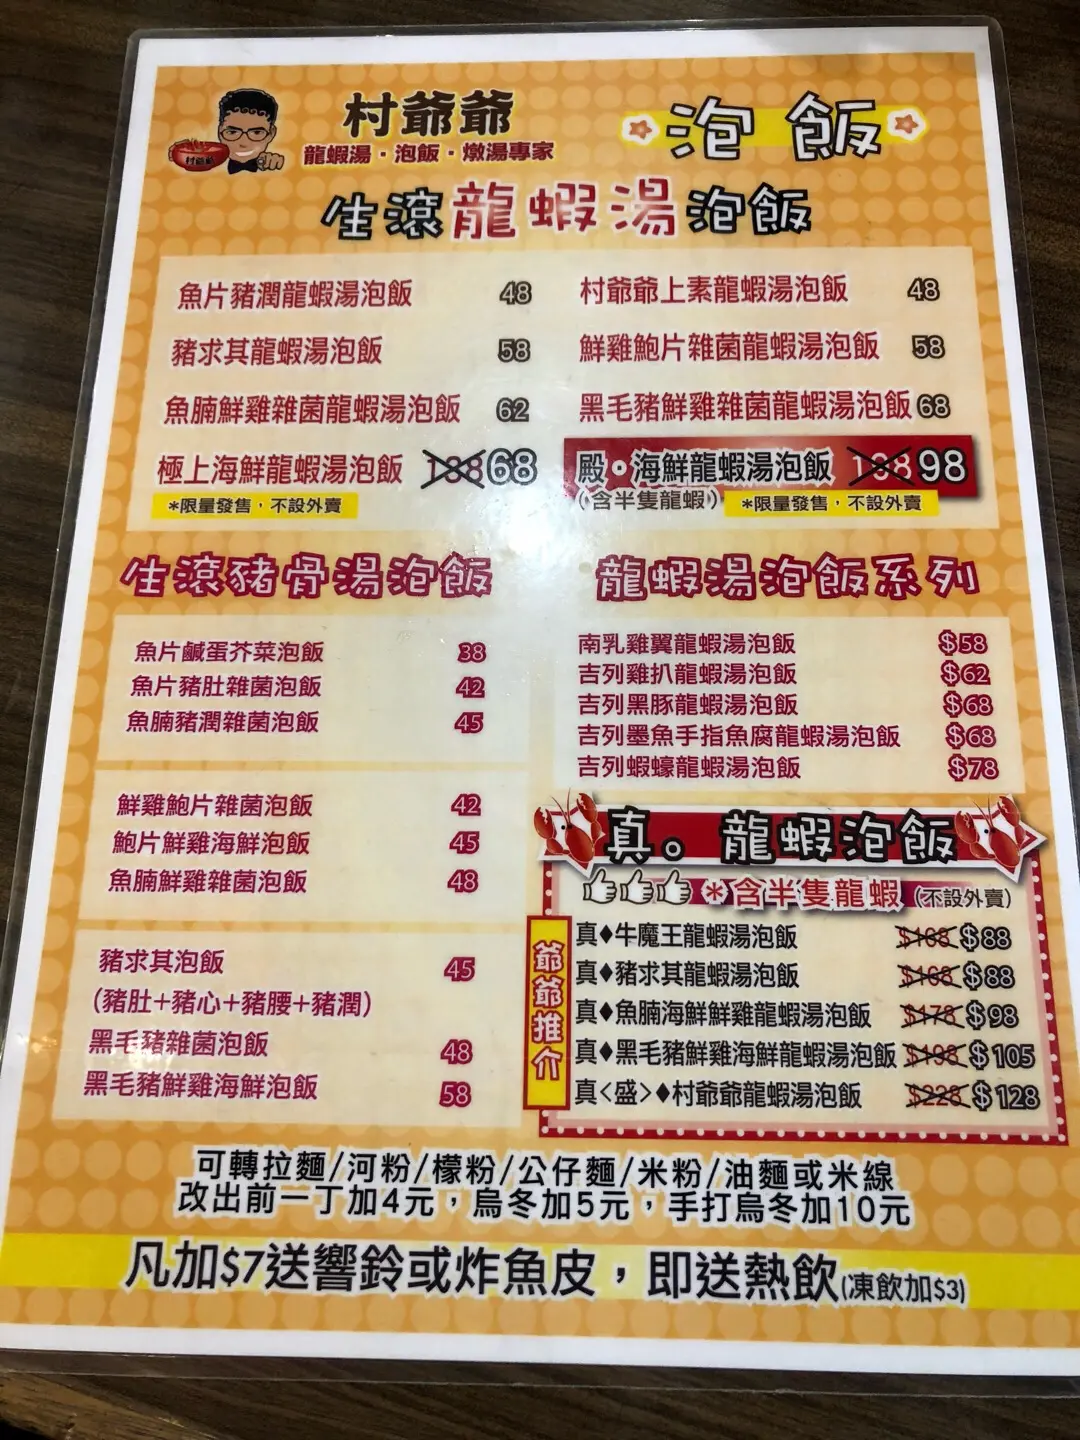 村爺爺
龍蝦湯·泡飯·燉湯專家
泡飯
生滾龍蝦湯泡飯
魚片豬潤龍蝦湯泡飯 48
豬求其龍蝦湯泡飯 58
魚腩鮮雞雜菌龍蝦湯泡飯 62
極上海鮮龍蝦湯泡飯 138 68
*限量發售,不設外賣
村爺爺上素龍蝦湯泡飯 48
鮮雞鮑片雜菌龍蝦湯泡飯 58
黑毛豬鮮雞雜菌龍蝦湯泡飯 68
殿·海鮮龍蝦湯泡飯 198 98
(含半隻龍蝦) *限量發售,不設外賣
生滾豬骨湯泡飯
魚片鹹蛋芥菜泡飯 38
魚片豬肚雜菌泡飯 42
魚腩豬潤雜菌泡飯 45
鮮雞鮑片雜菌泡飯 42
鮑片鮮雞海鮮泡飯 45
魚腩鮮雞雜菌泡飯 48
豬求其泡飯 45
(豬肚+豬心+豬腰+豬潤)
黑毛豬雜菌泡飯 48
黑毛豬鮮雞海鮮泡飯 58
龍蝦湯泡飯系列
南乳雞翼龍蝦湯泡飯 $58
吉列雞扒龍蝦湯泡飯 $62
吉列黑豚龍蝦湯泡飯 $68
吉列墨魚手指魚腐龍蝦湯泡飯 $68
吉列蝦蠔龍蝦湯泡飯 $78
真。龍蝦泡飯
*含半隻龍蝦 (不設外賣)
爺爺推介
真♦牛魔王龍蝦湯泡飯 $168 $88
真♦豬求其龍蝦湯泡飯 $168 $88
真♦魚腩海鮮鮮雞龍蝦湯泡飯 $178 $98
真♦黑毛豬鮮雞海鮮龍蝦湯泡飯 $198 $105
真<盛>♦村爺爺龍蝦湯泡飯 $228 $128
可轉拉麵/河粉/檬粉/公仔麵/米粉/油麵或米線
改出前一丁加4元,烏冬加5元,手打烏冬加10元
凡加$7送響鈴或炸魚皮,即送熱飲(凍飲加$3)